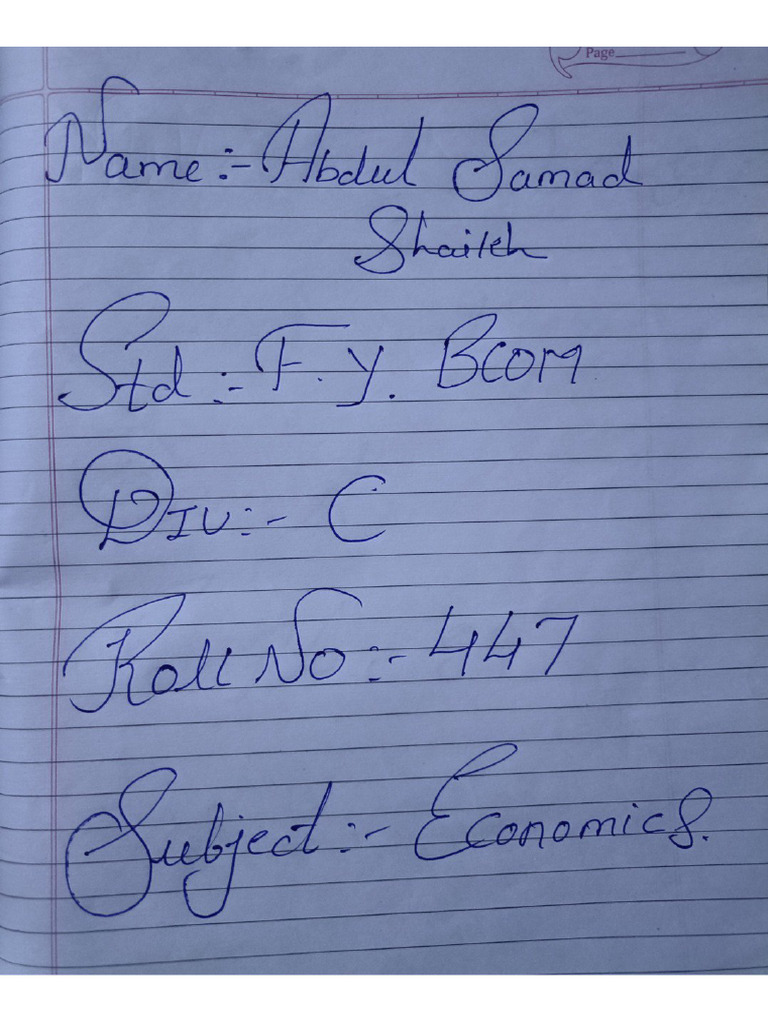 Page
Name:- Abdul Samad
Shaikh
Std:- F.Y. BCOM
DIV:- C
Roll No:- 447
Subject:- Economics.